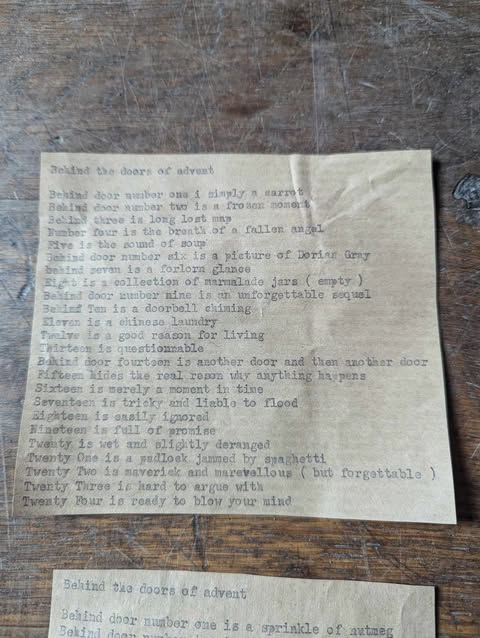 Behind the doors of advent
Behind door number one i simply a carrot
Behind door number two is a frozen moment
Behind three is long lost map
Number four is the breath of a fallen angel
Five is the sound of soup
Behind door number six is a picture of Dorian Gray
behind seven is a forlorn glance
Eight is a collection of marmalade jars ( empty )
Behind door number nine is an unforgettable sequel
Behind Ten is a doorbell chiming
Eleven is a chinese laundry
Twelve is a good reason for living
Thirteen is questionnable
Behind door fourteen is another door and then another door
Fifteen hides the real reson why anything happens
Sixteen is merely a moment in time
Seventeen is tricky and liable to flood
Eighteen is easily ignored
Nineteen is full of promise
Twenty is wet and slightly deranged
Twenty One is a padlock jammed by spaghetti
Twenty Two is maverick and marevellous ( but forgettable )
Twenty Three is hard to argue with
Twenty Four is ready to blow your mind
Behind the doors of advent
Behind door number one is a sprinkle of nutmeg
Behind door number